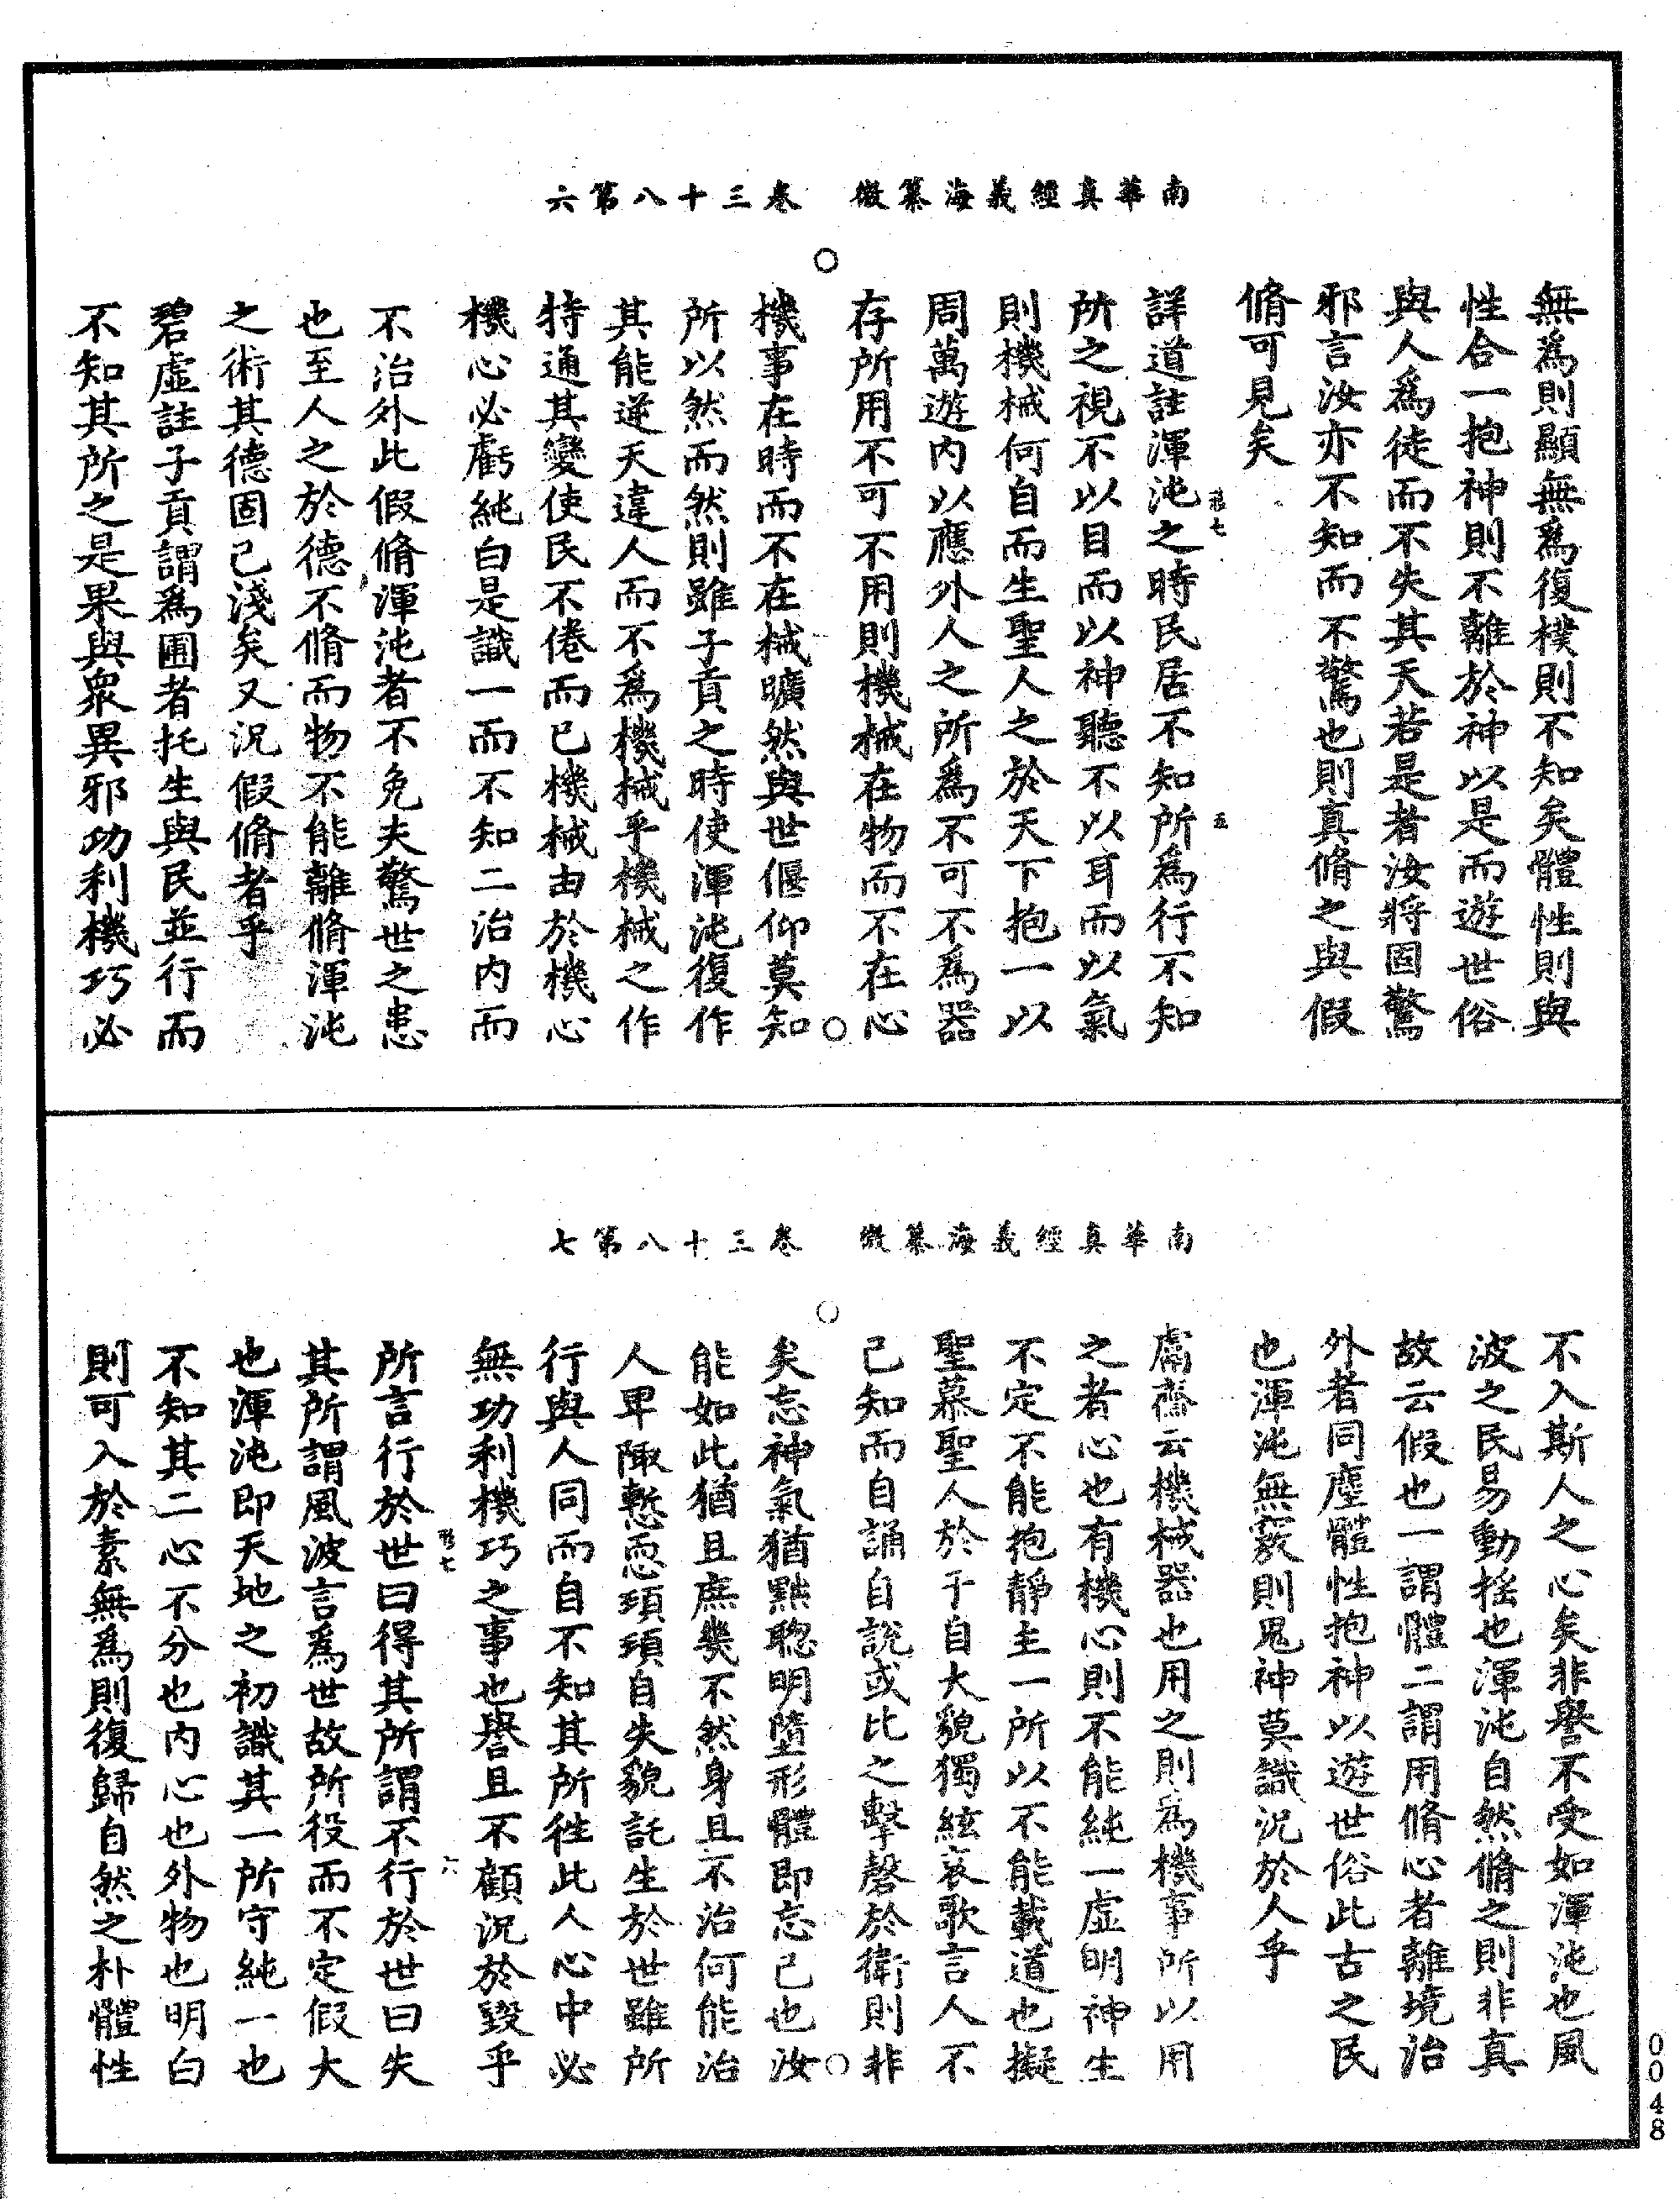 南華真經義海纂微　卷三十八第六
無為則顯無為復樸則不知矣體性則與
性合一抱神則不離於神以是而遊世俗
與人為徒而不失其天若是者汝將固驚
邪言汝亦不知而不驚也則真脩之與假
脩可見矣
詳道註渾沌之時民居不知所為行不知
所之視不以目而以神聽不以耳而以氣
則機械何自而生聖人之於天下抱一以
周萬遊內以應外人之所為不可不為器
存所用不可不用則機械在物而不在心
機事在時而不在械曠然與世偃仰莫知
所以然而然則雖子貢之時使渾沌復作
其能逆天違人而不為機械乎機械之作
特通其變使民不倦而已機械由於機心
機心必虧純白是識一而不知二治內而
不治外此假脩渾沌者不免夫驚世之患
也至人之於德不脩而物不能離脩渾沌
之術其德固已淺矣又況假脩者乎
碧虛註子貢謂為圃者托生與民並行而
不知其所之是果與眾異邪功利機巧必
五
南華真經義海纂微　卷三十八第七
不入斯人之心矣非譽不受如渾沌也風
波之民易動搖也渾沌自然脩之則非真
故云假也一謂體二謂用脩心者離境治
外者同塵體性抱神以遊世俗此古之民
也渾沌無竅則鬼神莫識況於人乎
鬳齋云機械器也用之則為機事所以用
之者心也有機心則不能純一虛明神生
不定不能抱靜主一所以不能載道也擬
聖慕聖人於于自大貌獨絃哀歌言人不
己知而自誦自說或比之擊磬於衛則非
矣忘神氣猶黜聰明墮形體即忘己也汝
能如此猶且庶幾不然身且不治何能治
人卑陬慙恧頊頊自失貌託生於世雖所
行與人同而自不知其所往此人心中必
無功利機巧之事也譽且不顧況於毀乎
所言行於世曰得其所謂不行於世曰失
其所謂風波言為世故所役而不定假大
也渾沌即天地之初識其一所守純一也
不知其二心不分也內心也外物也明白
則可入於素無為則復歸自然之朴體性
六
0048